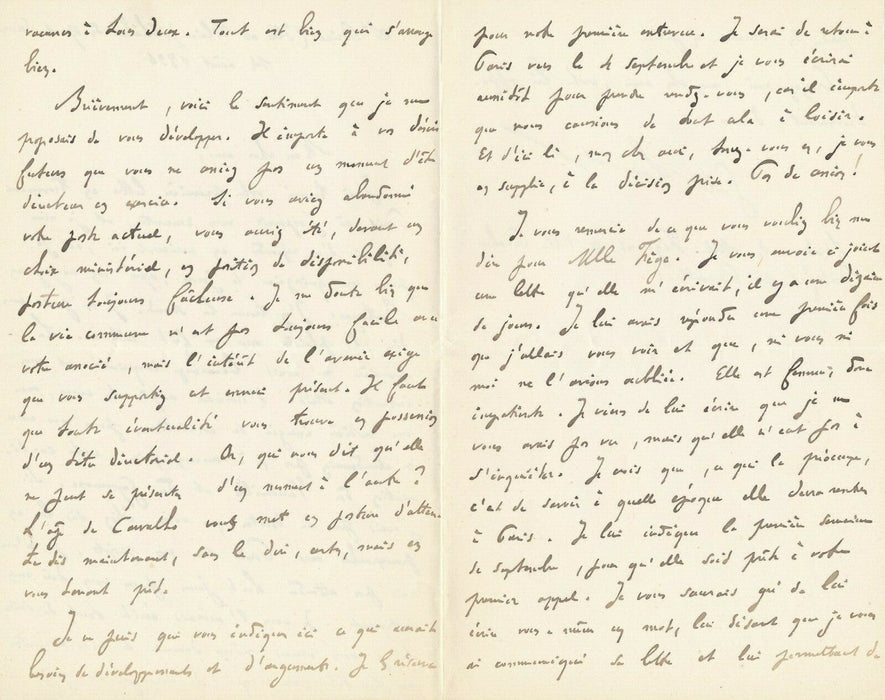 vacances à tous deux. Tout est bien qui s'arrange
bien.
Brièvement, voici le sentiment que je me
proposais de vous développer. Il importe à vos désirs
futurs que vous ne cessiez pas un moment d'être
directeur en exercice. Si vous aviez abandonné
votre poste actuel, vous auriez été, devant un
choix ministériel, en position de disponibilité,
posture toujours fâcheuse. Je me doute bien que
la vie commune n'est pas toujours facile avec
votre associé, mais l'intérêt de l'avenir exige
que vous supportiez cet ennui présent. Il faut
que toute éventualité vous trouve en possession
d'un titre directorial. Or, qui nous dit qu'elle
ne peut se présenter d'un moment à l'autre ?
L'âge de Carvalho vous met en posture d'attente
dès maintenant, sans le dire, certes, mais en
vous tenant prêt.
Je ne puis que vous indiquer ici ce qui aurait
besoin de développements et d'arguments. Je les réserve
pour notre première entrevue. Je serai de retour à
Paris vers le 4 septembre et je vous écrirai
aussitôt pour prendre rendez-vous, car il importe
que nous causions de tout cela à loisir.
Et d'ici là, mon cher ami, tenez-vous en, je vous
en supplie, à la décision prise. Pas de cession !
Je vous remercie de ce que vous voulez bien me
dire pour Mlle. Je vous envoie ci joint
une lettre qu'elle m'écrivait, il y a une dizaine
de jours. Je lui avais répondu une première fois
que j'allais vous voir et que, ni vous ni
moi ne l'avions oubliée. Elle est femme, donc
impatiente. Je viens de lui écrire que je ne
vous avais pas vu, mais qu'elle n'eût pas à
s'inquiéter. Je crois que, ce qui la préoccupe,
c'est de savoir à quelle époque elle devra rentrer
à Paris. Je lui indique la première semaine
de septembre, pour qu'elle soit prête à votre
premier appel. Je vous saurais gré de lui
écrire vous-même un mot, lui disant que je vous
ai communiqué sa lettre et lui permettant de